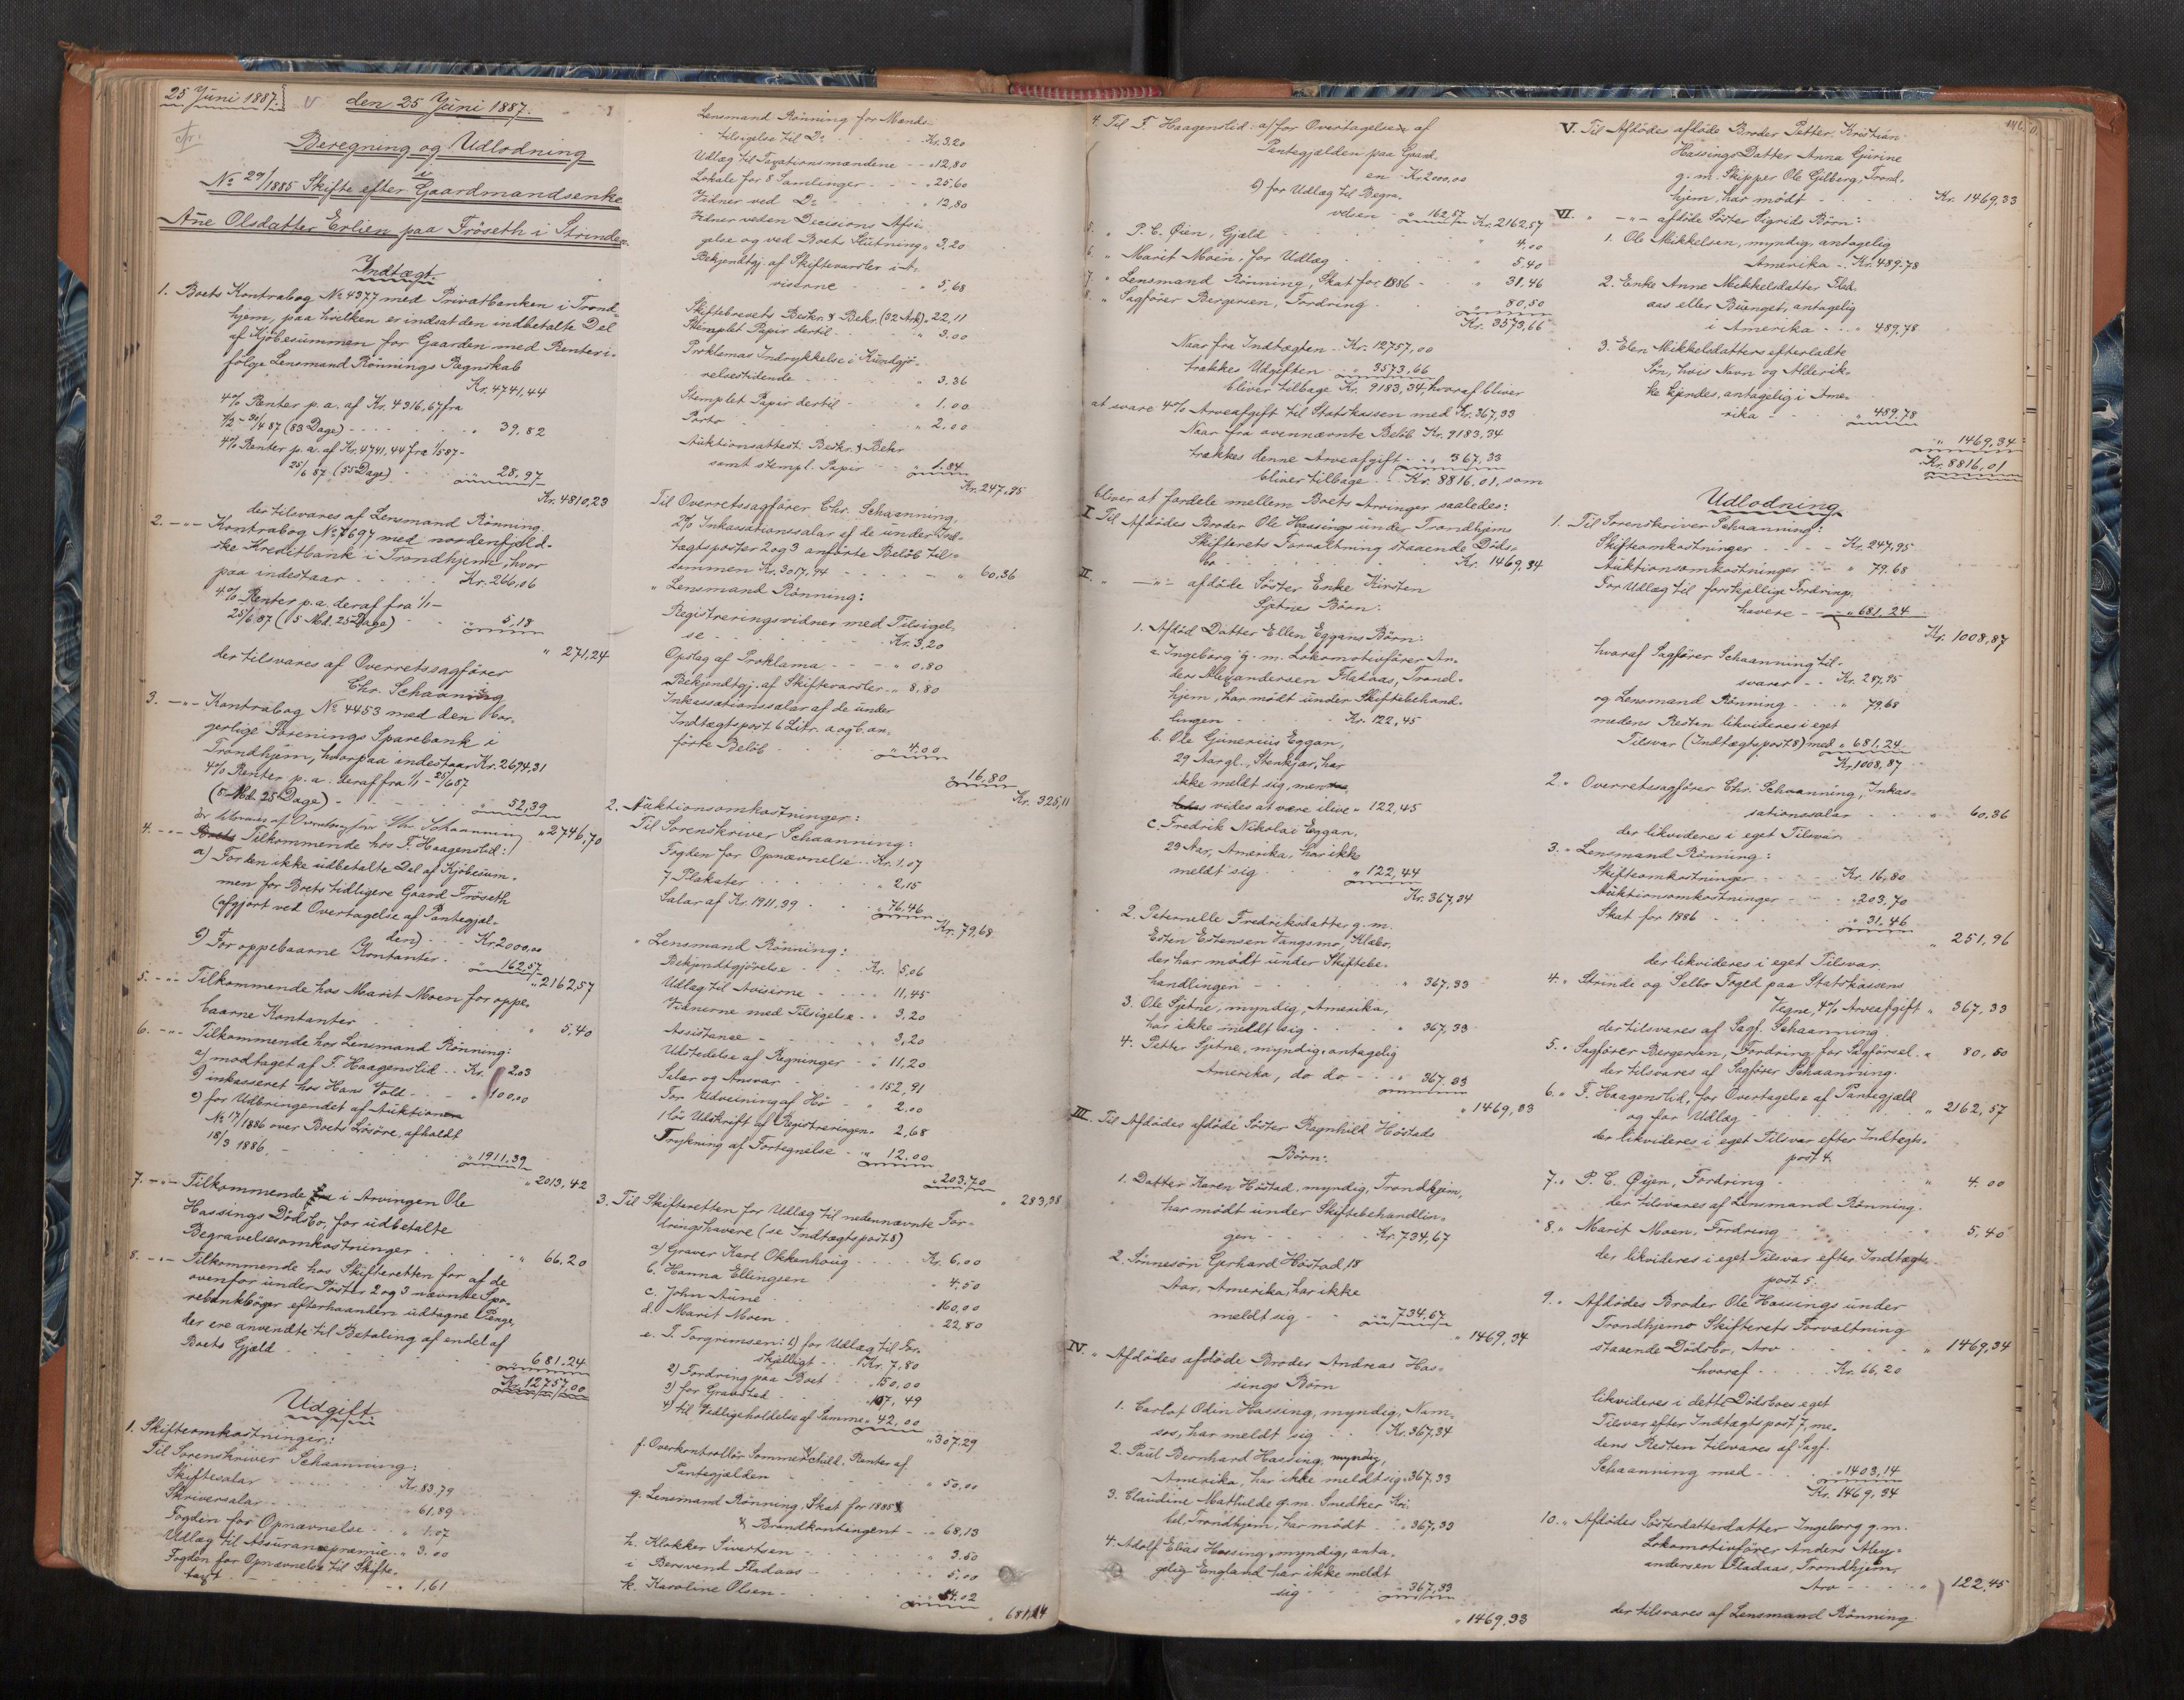 25 Juni 1887.
den 25 Juni 1887.
Beregning og Udlodning
i
No 29/1885 Skifte efter Gaardmandsenke
Ane Olsdatter Erlien paa Fröseth i Strinden.
Indtægt.
1. Boets Kontrabog No 4377 med Privatbanken i Trond-
hjem, paa hvilken er indsat den indbetalte Del
af Kjöbesummen for Gaarden med Renter i-
fölge Lensmand Rönnings Regnskab
Kr. 4741,44
4% Renter p. a. af Kr. 4316,67 fra
1/2 - 30/4 87 (83 Dage) - - - " 39,82
4% Renter p. a. af Kr. 4741,44 fra 1/5 87 -
25/6 87 (55 Dage) - - " 28,97
Kr. 4810,23
der tilsvares af Lensmand Rönning.
2. -"- Kontrabog No 7697 med nordenfjeld-
ske Kreditbank i Trondhjem, hvor
paa indestaar - - - Kr. 266,06
4% Renter p. a. deraf fra 1/1 -
25/6 87 (5 Md. 25 Dage) - - " 5,18
" 271,24
der tilsvares af Overretssagförer
Chr. Schaanning
3. -"- Kontrabog No 4453 med den bor-
gerlige Forenings Sparebank i
Trondhjem, hvorpaa indestaar Kr. 2694,31
4% Renter p. a. deraf fra 1/1 - 25/6 87
(5 Md. 25 Dage) - - - " 52,39
der tilsvares af Overretssagförer Chr. Schaanning " 2746,70
4. -"- Tilkommende hos F. Haagenstid:
a) For den ikke udbetalte Del af Kjöbesum-
men for Boets tidligere Gaard Fröseth
(afgjort ved Overtagelse af Pantegjæl-
den) - - Kr. 2000,00
b) For oppebaarne Kontanter - " 162,57
" 2162,57
5. -"- Tilkommende hos Marit Moen for oppe-
baarne Kontanter - - - " 5,40
6. -"- Tilkommende hos Lensmand Rönning:
a) modtaget af F. Haagenstid - - Kr. 2,03
b) inkasseret hos Hans Vold - - " 100,00
c) for Udbringendet af Auktionen
No 17/1886 over Boets Lösöre, afholdt
18/3 1886. - - - " 1911,39
" 2013,42
7. -"- Tilkommende i Arvingen Ole
Hassings Dödsbo, for udbetalte
Begravelsesomkostninger - - - " 66,20
8. -"- Tilkommende hos Skifteretten for af de
ovenfor under Poster 2 og 3 nævnte Spa-
rebankböger efterhaanden udtagne Penge,
der ere anvendte til Betaling af endel af
Boets Gjæld - - - 681,24
Kr. 12757,00
Udgift
1. Skifteomkostninger:
Til Sorenskriver Schaanning:
Skiftesalar - - - Kr. 83,79
Skriversalar - - - " 61,89
Fogden for Opnævnelse - - " 1.07
Udlæg til Assurancepræmie - " 3.00
Fogden for Opnævnelse til Skifte-
taxt - - - " 1,61
Lensmand Rönning for Mænds-
tilsigelse til Do - - - Kr. 3,20
Udlæg til Taxationsmændene - - " 12,80
Lokale for 8 Samlinger - - - " 25,60
Vidner ved Do - - - " 12,80
Vidner ved en Decisions Afsi-
gelse og ved Boets Slutning " 3,20
Bekjendtgj. af Skiftevarsler i A-
viserne - - - " 5,68
Skiftebrevets Beskr. & Bekr. (32 Ark) " 22,11
Stemplet Papir dertil - - - " 3.00
Proklamas Indrykkelse i Kundgjö-
relsestidende - - - " 3,36
Stemplet Papir dertil - - - " 1.00
Porto - - - " 2.00
Auktionsattest: Beskr. & Bekr
samt stempl. Papir - - " 1,84
Kr. 247,95
Til Overretssagförer Chr. Schaanning,
2% Inkassationssalar af de under Ind-
tægtsposter 2 og 3 anförte Belöb til-
sammen Kr. 3017,94 - - - " 60,36
" Lensmand Rönning:
Registreringsvidner med Tilsigel-
se - - - Kr. 3,20
Opslag af Proklama - - - " 0.80
Bekjendtgj. af Skiftevarsler - " 8,80
Inkassationssalar af de under
Indtægtspost 6 Litr. a og b. an-
förte Belöb - - - " 4.00
" 16,80
Kr. 325,11
2. Auktionsomkostninger:
Til Sorenskriver Schaanning:
Fogden for Opnævnelse - Kr. 1,07
7 Plakater - - - " 2,15
Salar af Kr. 1911,39 - - " 76,46
Kr. 79,68
" Lensmand Rönning:
Bekjendtgjörelse - - Kr. 5,06
Udlæg til Aviserne - - " 11,45
Vidnerne med Tilsigelse - " 3,20
Assistance - - - " 3,20
Udstedelse af Regninger - " 11,20
Salar og Ansvar - - " 152,91
For Udveining af Hö - " 2.00
1 lös Udskrift af Registreringen " 2,68
Trykning af Fortegnelse - " 12.00
" 203,70
" 283,38
3. Til Skifteretten for Udlæg til nedennævnte For-
dringshavere (se Indtægtspost 8)
a) Graver Karl Okkenhoug - - - Kr. 6,00
b. Hanna Ellingsen - - - " 4,50
c. John Aune - - - " 160,00
d. Marit Moen - - - " 22,80
e. P. Torgrimsen: 1) for Udlæg til For-
skjelligt - - Kr. 7,80
2) Fordring paa Boet - " 150,00
3) for Gravsted - " 107,49
4) til Vedligeholdelse af Samme " 42,00
" 307,29
f. Overkontrollör Sommerschild, Renter af
Pantegjælden - - - " 50,00
g. Lensmand Rönning, Skat for 1885
& Brandkontingent - - " 68,13
h. Klokker Sivertsen - - - " 3.50
i Bersvend Fladaas - - - " 5,00
k. Karoline Olsen - - - " 54,02
" 681,24
4. Til F. Haagenstid: a) for Overtagelsen af
Pantegjælden paa Gaard-
en - Kr. 2000,00
b) for Udlæg til Begra-
velsen - " 162,57 Kr. 2162,57
5. " P. C. Øien, Gjæld - - - " 4.00
6. " Marit Moen, for Udlæg - - - " 5.40
7. " Lensmand Rönning, Skat for 1886 - - " 31,46
8. " Sagförer Bergersen, Fordring - - - " 80,50
Kr. 3573,66
Naar fra Indtægten - Kr. 12757,00
trækkes Udgiften - " 3573.66
bliver tilbage Kr. 9183,34, hvoraf bliver
at svare 4% Arveafgift til Statskassen med Kr. 367,33
Naar fra ovennævnte Belöb Kr. 9183,34
trækkes denne Arveafgift - " 367,33
bliver tilbage - Kr. 8816.01, som
bliver at fordele mellem Boets Arvinger saaledes:
I Til Afdödes Broder Ole Hassings under Trondhjems
Skifterets Forvaltning staaende Döds-
bo - - - Kr. 1469,34
II. " -"- afdöde Söster Enke Kirsten
Sjetnes Börn:
1. Afdöd Datter Ellen Eggans Börn:
a. Ingeborg g. m. Lokomotivförer An-
ders Alexandersen Fladaas, Trond-
hjem, har mödt under Skiftebehand-
lingen - - - Kr. 122,45
b. Ole Gunerius Eggan,
29 Aar gl., Stenkjær, har
ikke meldt sig, men
vides at være ilive " 122,45
c. Fredrik Nikolai Eggan,
23 Aar, Amerika, har ikke
meldt sig - - - " 122,44
Kr. 367,34
2. Peternelle Fredriksdatter g. m.
Esten Estensen Vangsmo, Klæbo,
der har mödt under Skiftebe-
handlingen - - - " 367,33
3. Ole Sjetne, myndig, Amerika,
har ikke meldt sig - - " 367,33
4. Petter Sjetne, myndig, antagelig
Amerika, do do - - " 367.33
" 1469,33
III. Til Afdödes afdöde Söster Ragnhild Höstads
Börn:
1. Datter Karen Höstad, myndig, Trondhjem,
har mödt under Skiftebehandlin-
gen - - - Kr. 734,67
2. Sönnesön Gerhard Höstad, 18
Aar, Amerika, har ikke
meldt sig - - - " 734,67
" 1469,34
IV. " Afdödes afdöde Broder Andreas Has-
sings Börn
1. Carlot Odin Hassing, myndig, Nam-
sos, har meldt sig - - Kr. 367,34
2. Paul Bernhard Hassing, myndig,
Amerika, har ikke meldt sig " 367.33
3. Claudine Mathilde g. m. Snedker Kri-
tel, Trondhjem, har mödt - " 367,33
4. Adolf Elias Hassing, myndig, anta-
gelig England har ikke meldt
sig - - - " 367,33
" 1469,33
V. Til Afdödes afdöde Broder Petter Kristian
Hassings Datter Anna Gurine
g. m. Skipper Ole Gilberg, Trond-
hjem, har mödt - - - Kr. 1469,33
VI. " -"- afdöde Söster Sigrids Börn:
1. Ole Mikkelsen, myndig, antagelig
Amerika - - Kr. 489.78
2. Enke Anne Mikkelsdatter Flad-
aas eller Buanget, antagelig
i Amerika - - " 489,78
3. Elen Mikkelsdatters efterladte
Sön, hvis Navn og Alder ik-
ke kjendes, antagelig i Ame-
rika - - - " 489.78
" 1469,34
Kr. 8816,01
Udlodning
1. Til Sorenskriver Schaanning:
Skifteomkostninger - - - Kr. 247,95
Auktionsomkostninger - - " 79.68
For Udlæg til forskjellige Fordrings-
havere - - " 681.24
Kr. 1008,87
hvoraf Sagförer Schaanning til-
svarer - - Kr. 247,95
og Lensmand Rönning - - " 79,68
medens Resten likvideres i eget
Tilsvar (Indtægtspost 8) med " 681,24
Kr. 1008,87
2 " Overretssagförer Chr. Schaanning, Inkas-
sationssalar - - - " 60.36
der likvideres i eget Tilsvar
3. " Lensmand Rönning:
Skifteomkostninger - - - Kr. 16,80
Auktionsomkostninger - - " 203,70
Skat for 1886 - - - " 31.46
" 251,96
der likvideres i eget Tilsvar.
4. " Strinde og Selbo Foged paa Statskassens
Vegne, 4% Arveafgift " 367,33
der tilsvares af Sagf. Schaanning.
5. " Sagförer Bergersen, Fordring for Sagförsel " 80,50
der tilsvares af Sagförer Schaanning.
6. " F. Haagenstid, for Overtagelse af Pantegjæld
og for Udlæg - - - " 2162,57
der likvideres i eget Tilsvar efter Indtægts-
post 4.
7. " P. C. Øyen, Fordring - - - " 4.00
der tilsvares af Lensmand Rönning.
8. " Marit Moen, Fordring - - - " 5,40
der likvideres i eget Tilsvar efter Indtægts-
post 5.
9. " Afdödes Broder Ole Hassings under
Trondhjems Skifterets Forvaltning
staaende Dödsbo, Arv - - - " 1469,34
hvoraf - - Kr. 66,20
likvideres i dette Dödsboes eget
Tilsvar efter Indtægtspost 7, me-
dens Resten tilsvares af Sagf.
Schaanning med - - - " 1403,14
Kr. 1469,34
10. " Afdödes Sösterdatterdatter Ingeborg g. m.
Lokomotivförer Anders Alex-
andersen Fladaas, Trondhjem,
Arv - - - " 122,45
der tilsvares af Lensmand Rönning.